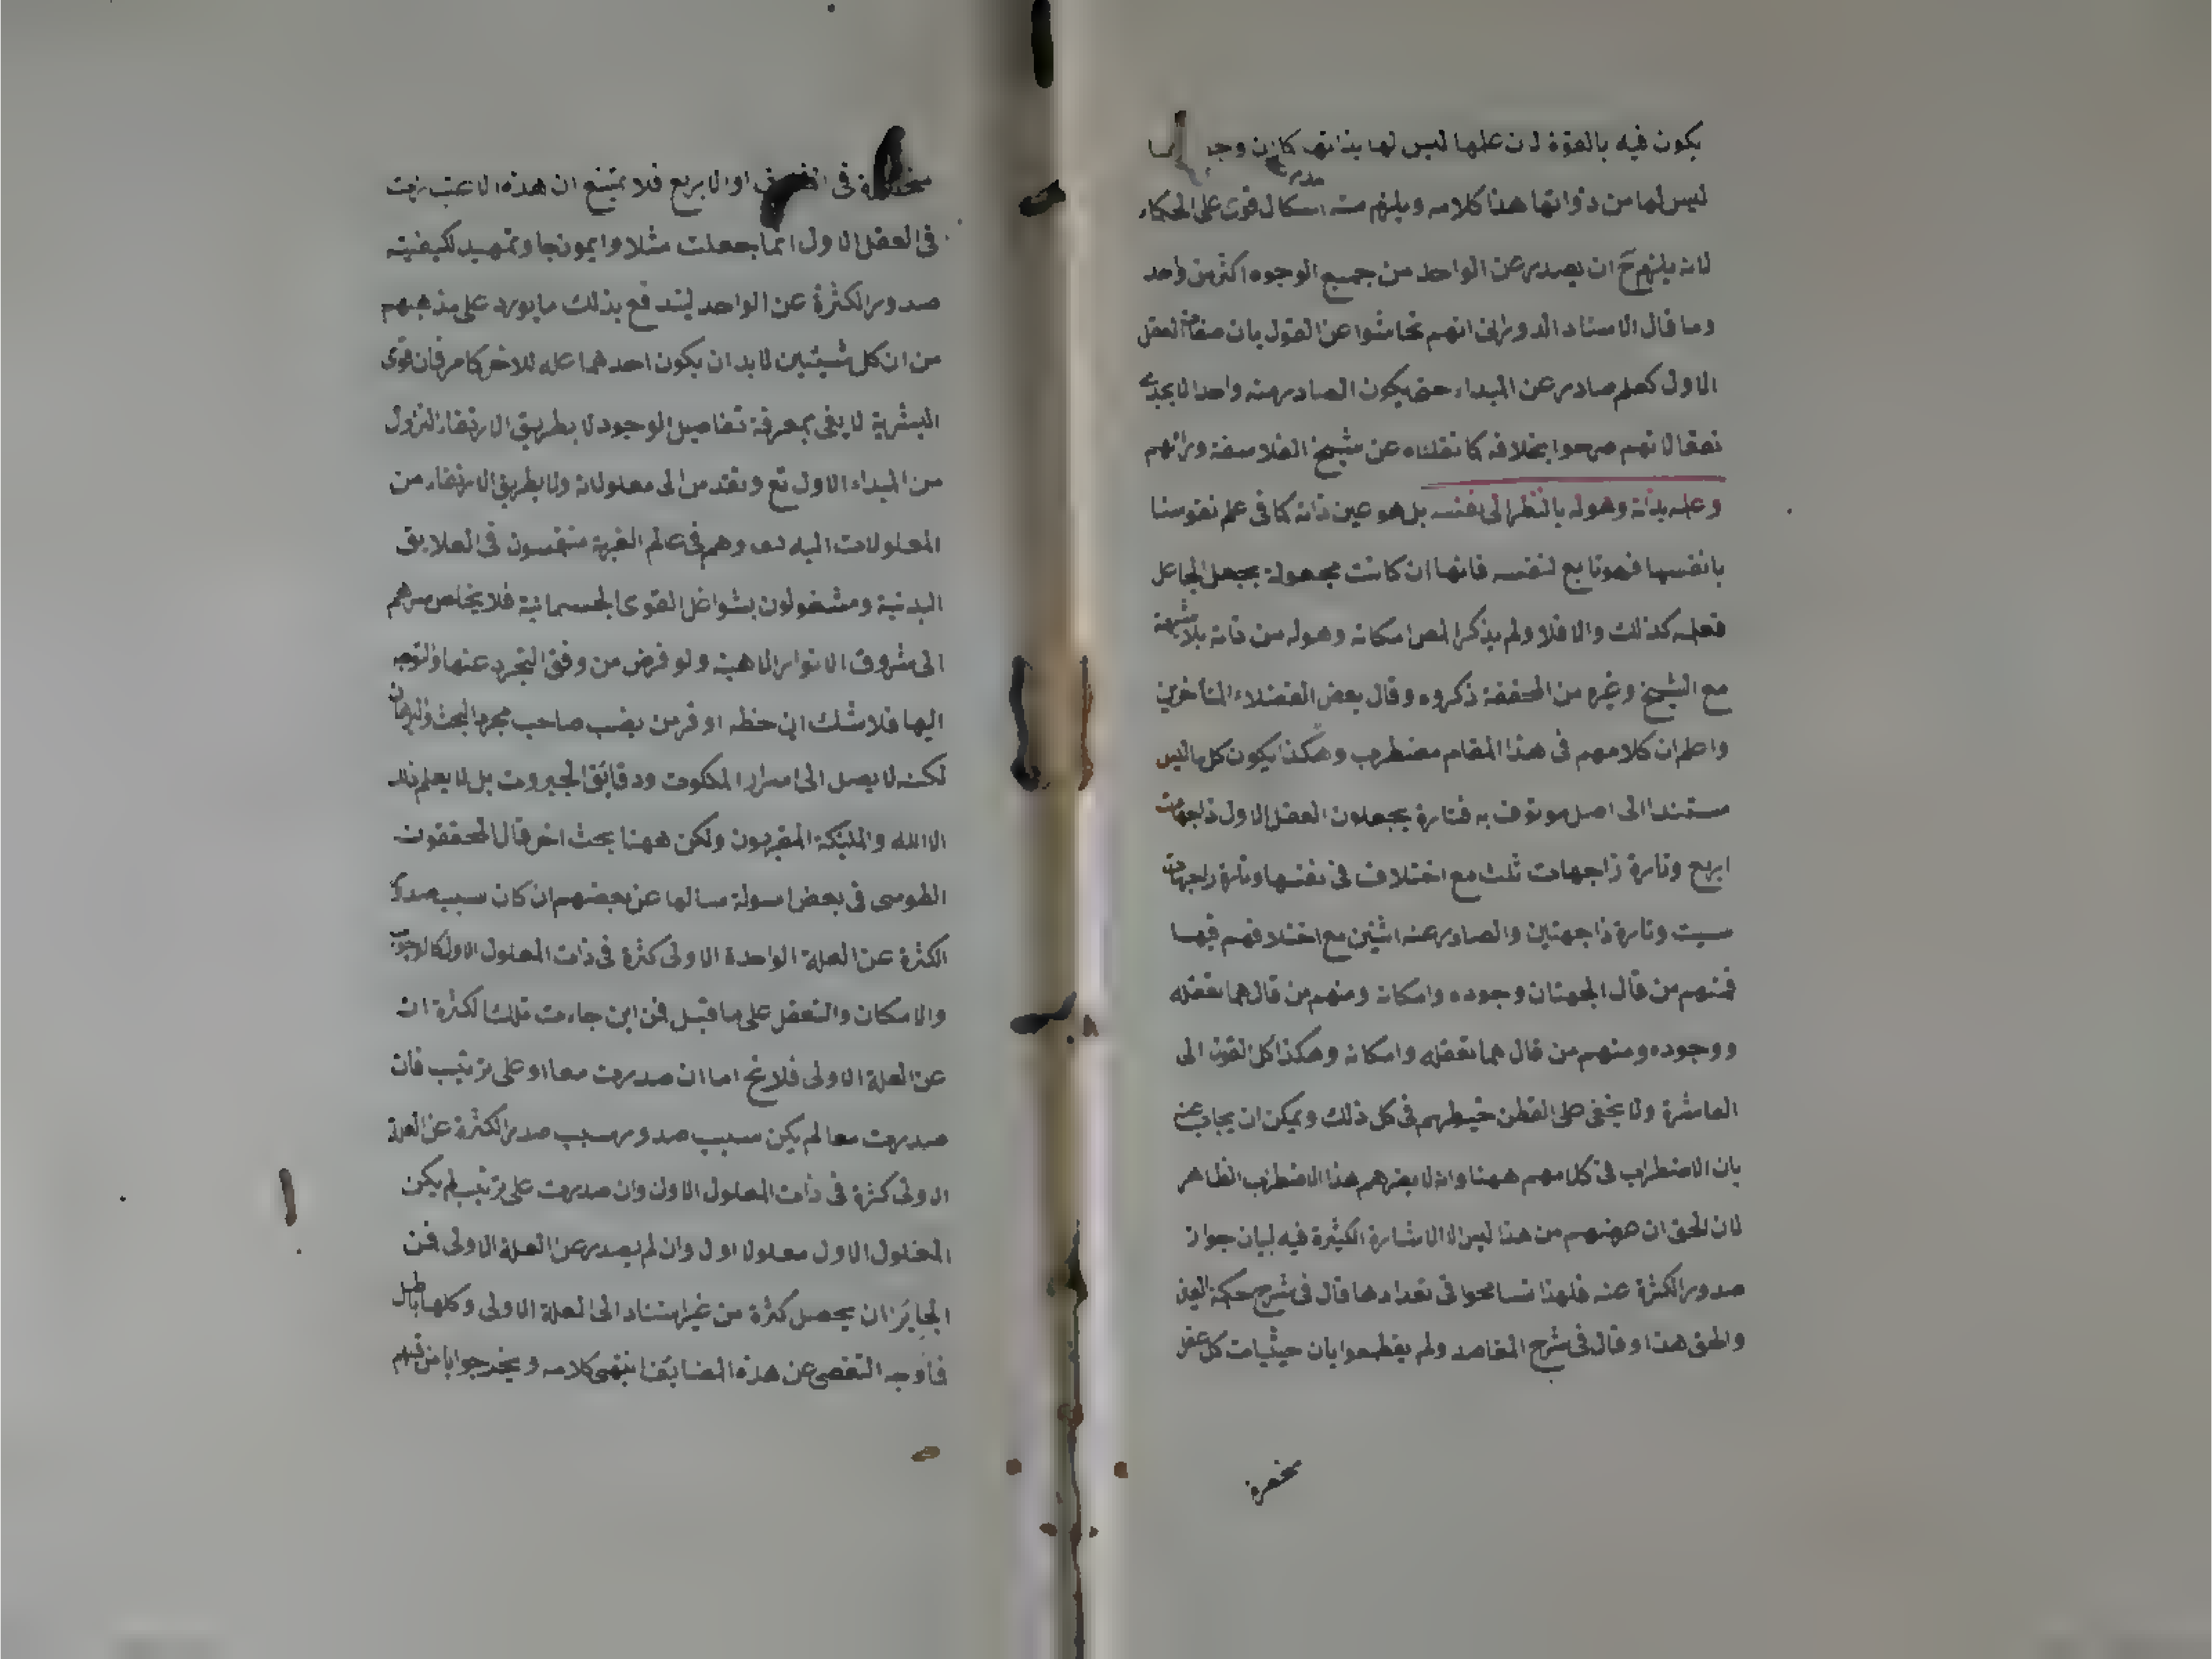 يكون فيه بالقوة لان علمها ليس لها بذاتها كان وجو
ليس لها من ذواتها هذا كلامه ويلزم منه اشكال قوى على الحكماء
لانه يلزم ح ان يصدر عن الواحد من جميع الوجوه اكثر من واحد
وما قال الاستاد الدورانى انهم تحاشوا عن القول بان صفات العقل
الاول كعلم صادر عن المبداء حتى يكون الصادر منه واحدا لا يجدى
نفعا لانهم صرحوا بخلافه كما نقلناه عن شيخ الفلاسفة ورائهم
وعلمه بذاته وهو له بالنظر الى نفسه بل هو عين ذاته كما فى علم نفوسنا
بانفسها فهو تابع لنفسه فانها ان كانت مجعولة بجعل الجاعل
فعلمه كذلك والا فلا ولم يذكر المص امكانه وهو له من ذاته بلا شبهة
مع الشيخ وغيره من المحققة ذكروه وقال بعض الفضلاء المتأخرين
واعلم ان كلامهم فى هذا المقام مضطرب وهكذا يكون كل ما ليس
مستندا الى اصل موثوق به فتارة يجعلون العقل الاول ذا جهات
اربع وتارة ذا جهات ثلث مع اختلاف فى نفسها وتارة ذا جهات
ست وتارة ذا جهتين والصادر عنه اثنين مع اختلافهم فيها
فمنهم من قال الجهتان وجوده وامكانه ومنهم من قال هما تعقله
ووجوده ومنهم من قال هما تعقله وامكانه وهكذا كل القول الى
العاشرة ولا يخفى على الفطن خبطهم فى كل ذلك ويمكن ان يجاب عنه
بان الاضطراب فى كلامهم ههنا وانه لا يضرهم هذا الاضطراب الظاهر
لان الحق ان غرضهم من هذا ليس الا الاشارة الكثيرة فيه لبيان جواز
صدور الكثرة عنه فلهذا تسامحوا فى تعدادها قال فى شرح حكمة العين
والحق هذا وقال فى شرح المقاصد ولم يقطعوا بان حيثيات كل عقل
منحصرة
منحصرة فى او الاربع فلا يمتنع ان هذه الاعتبارات
فى العقل الاول انما جعلت مثلا وانموذجا وتمهيد لكيفية
صدور الكثرة عن الواحد ليندفع بذلك ما يورد على مذهبهم
من ان كل شيئين لا بد ان يكون احدهما علة للاخر كما مر فان قوى
البشرية لا يفى بمعرفة تفاصيل الوجود لا بطريق الارتقاء النزول
من المبداء الاول تع وتقدس الى معلولاته ولا بطريق الارتقاء من
المعلولات اليه تعه وهم فى عالم الغربة منغمسون فى العلايق
البدنية ومشغولون بشواغل القوى الجسمانية فلا يخلص سرهم
الى شروق الانوار الاهية ولو فرض من وفق التجرد عنها والتوجه
اليها فلا شك ان حظه اوفر من نصب صاحب مجرد البحث والبرهان
لكنه لا يصل الى اسرار الملكوت ودقائق الجبروت بل لا يعلم ذلك
الا الله والملئكة المقربون ولكن ههنا بحث اخر قال المحققون
الطوسى فى بعض اسولة سالها عن بعضهم ان كان سبب صدور
الكثرة عن العلة الواحدة الاولى كثرة فى ذات المعلول الاول كالوجوب
والامكان والتعقل على ما قيل فمن اين جاءت تلك الكثرة ان
عن العلة الاولى فلا يخ اما ان صدرت معا او على ترتيب فان
صدرت معا لم يكن سبب صدور سبب صدر الكثرة عن العلة
الاولى كثرة فى ذات المعلول الاول وان صدرت على ترتيب لم يكن
المعلول الاول معلولا اول وان لم يصدر عن العلة الاولى فمن
الجايز ان يحصل كثرة من غير استناد الى العلة الاولى وكلها باطل
فما وجه التفصى عن هذه المضايق انتهى كلامه ويخرج جوابا من فهم